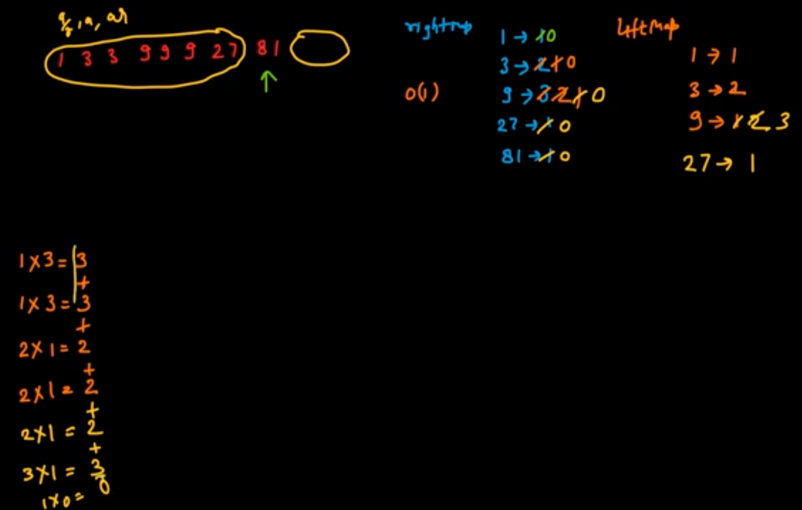 a/r, a, ar
1 3 3 9 9 9 27 81
rightmap
1 → 1 0
3 → 2 1 0
O(1)
9 → 3 2 1 0
27 → 1 0
81 → 1 0
leftMap
1 → 1
3 → 2
9 → 1 2 3
27 → 1
1 x 3 = 3
+
1 x 3 = 3
+
2 x 1 = 2
+
2 x 1 = 2
+
2 x 1 = 2
+
3 x 1 = 3
1 x 0 = 0